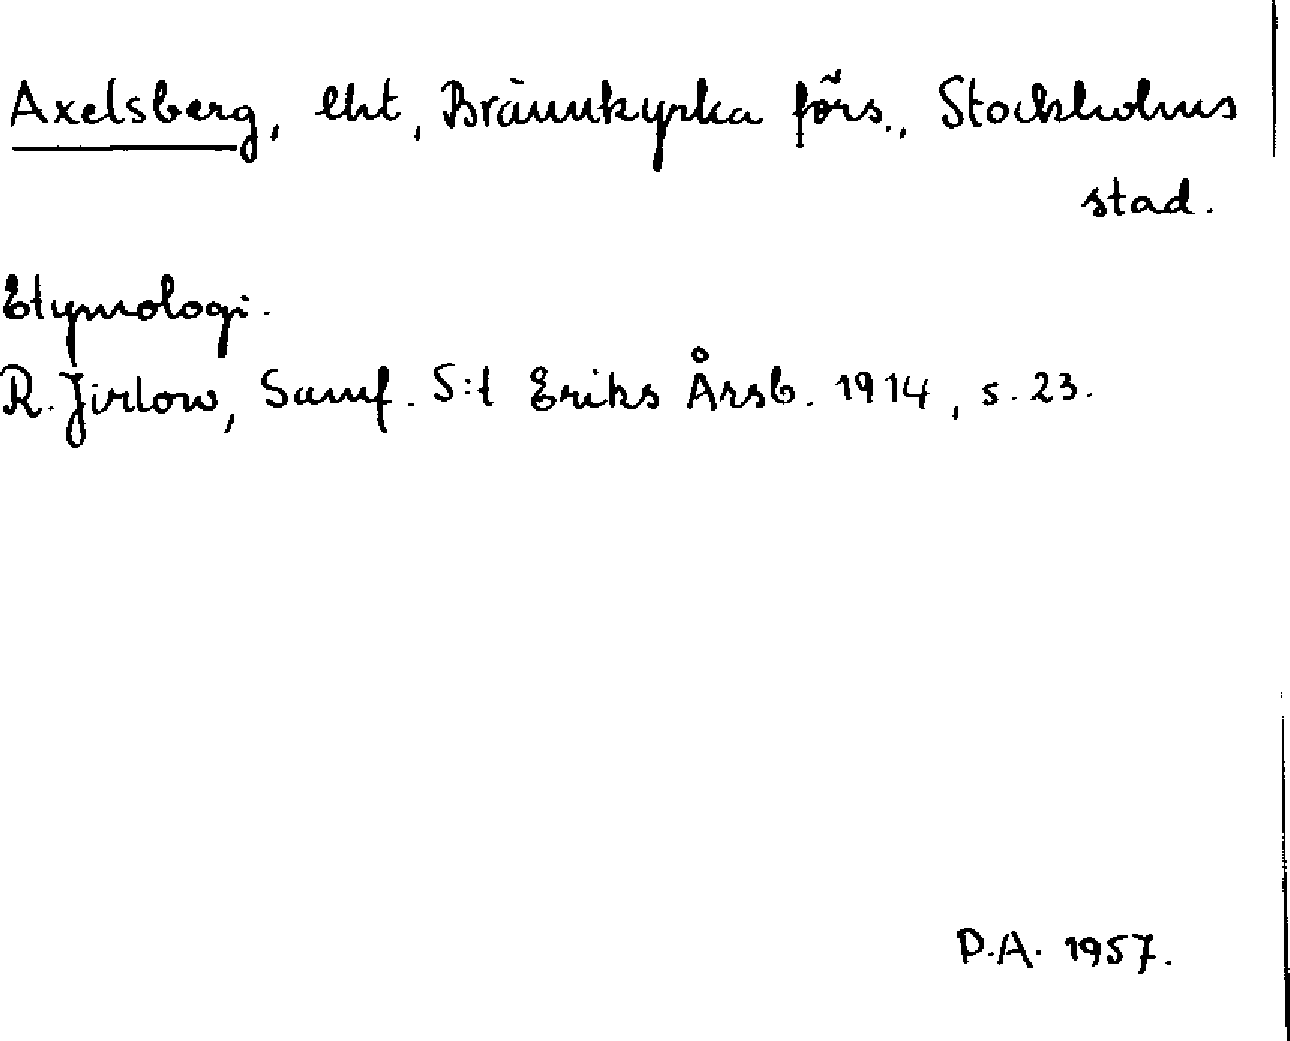 Axelsberg, lht, Brännkyrka förs., Stockholms
stad.
Etymologi.
R. Jirlow, Samf. S:t Eriks Årsb. 1914, s. 23.
D.A. 1957.